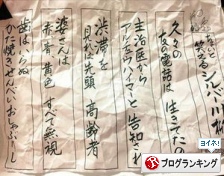 と笑える シルバー川
久々の
友の電話は 生きてたか
主治医から
アルツハイマーと 告知され
渋滞を
見れば先頭 高齢者
婆さんは
赤青黄色 すべて無視
歯はいらぬ
かた焼きせんべい おしゃぶし
ヨイネ!
ブログランキング